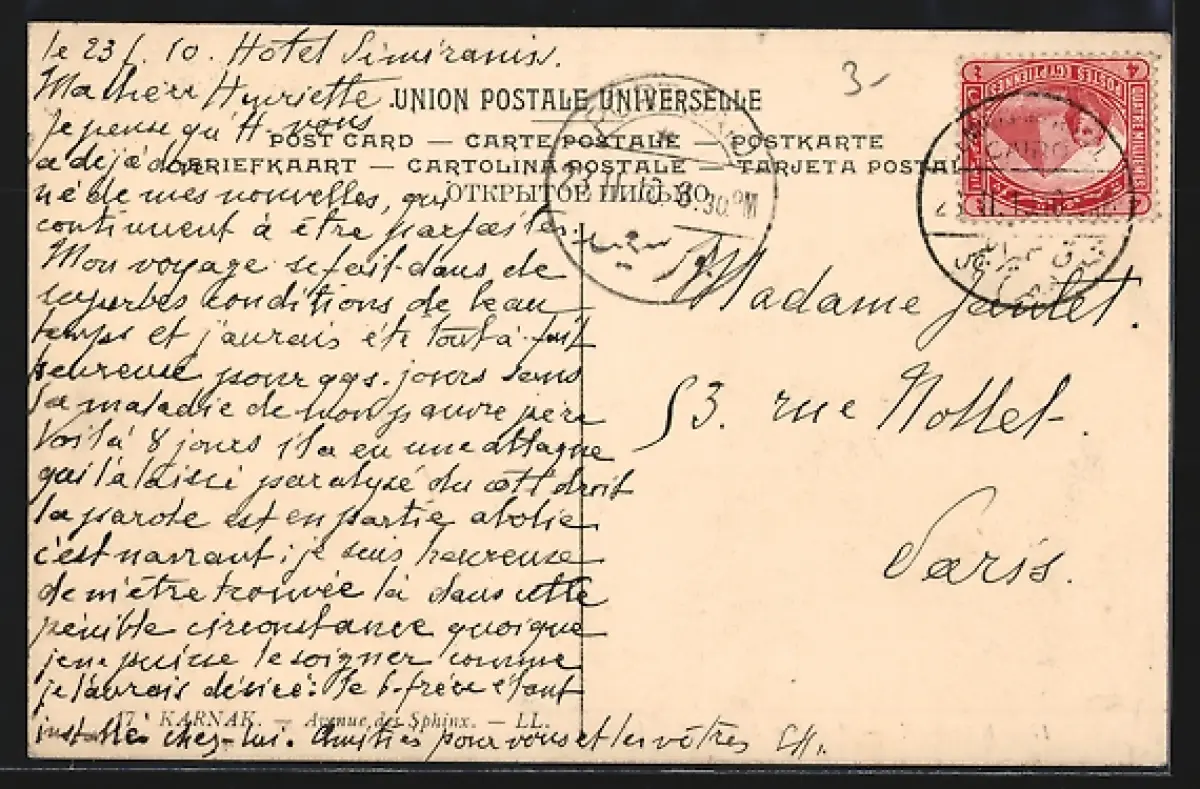 le 23/. 10. Hotel Semiramis.
Ma chère Henriette
Je pense qu'H. vous
a déjà don
né de mes nouvelles, qui
continuent à être parfaites.
Mon voyage se fait dans de
superbes conditions de beau
temps et j'aurais été tout à fait
heureuse pour qqs. jours sans
la maladie de mon pauvre père
Voilà 8 jours il a eu une attaque
qui l'a laissé paralysé du côté droit
la parole est en partie abolie
c'est navrant; je suis heureuse
de m'être trouvée là dans cette
pénible circonstance quoique
je ne puisse le soigner comme
je l'aurais désiré: le b-frère étant
installés chez-lui. Amitiés pour vous et les vôtres
UNION POSTALE UNIVERSELLE
POST CARD — CARTE POSTALE — POSTKARTE
BRIEFKAART — CARTOLINA POSTALE — TARJETA POSTAL
ОТКРЫТОЕ ПИСЬМО
3-
POSTES EGYPTIENNES
QUATRE MILLIEMES
4
CAIRO
.30.PM
Madame
53. rue Nollet.
Paris.
17. KARNAK. — Avenue des Sphinx. — LL.